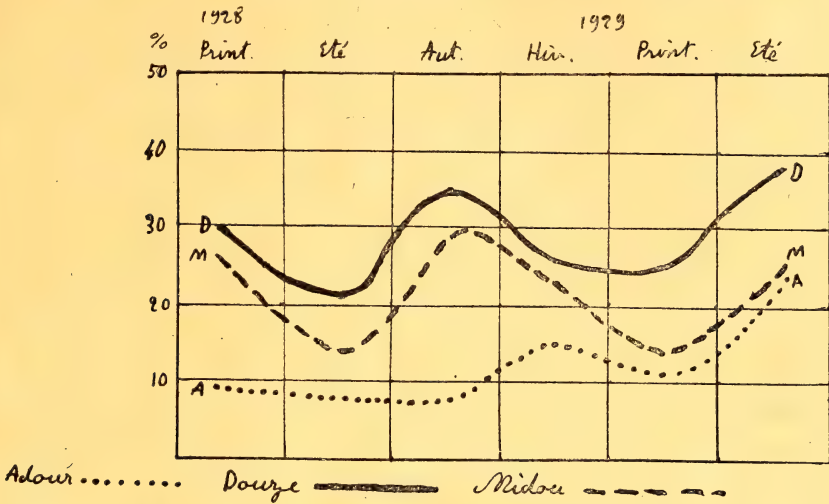 1928 1929
% Print. Eté Aut. Hiv. Print. Eté
50
40
30
20
10
D
M
A
D
M
A
Adour ........ Douze Midou